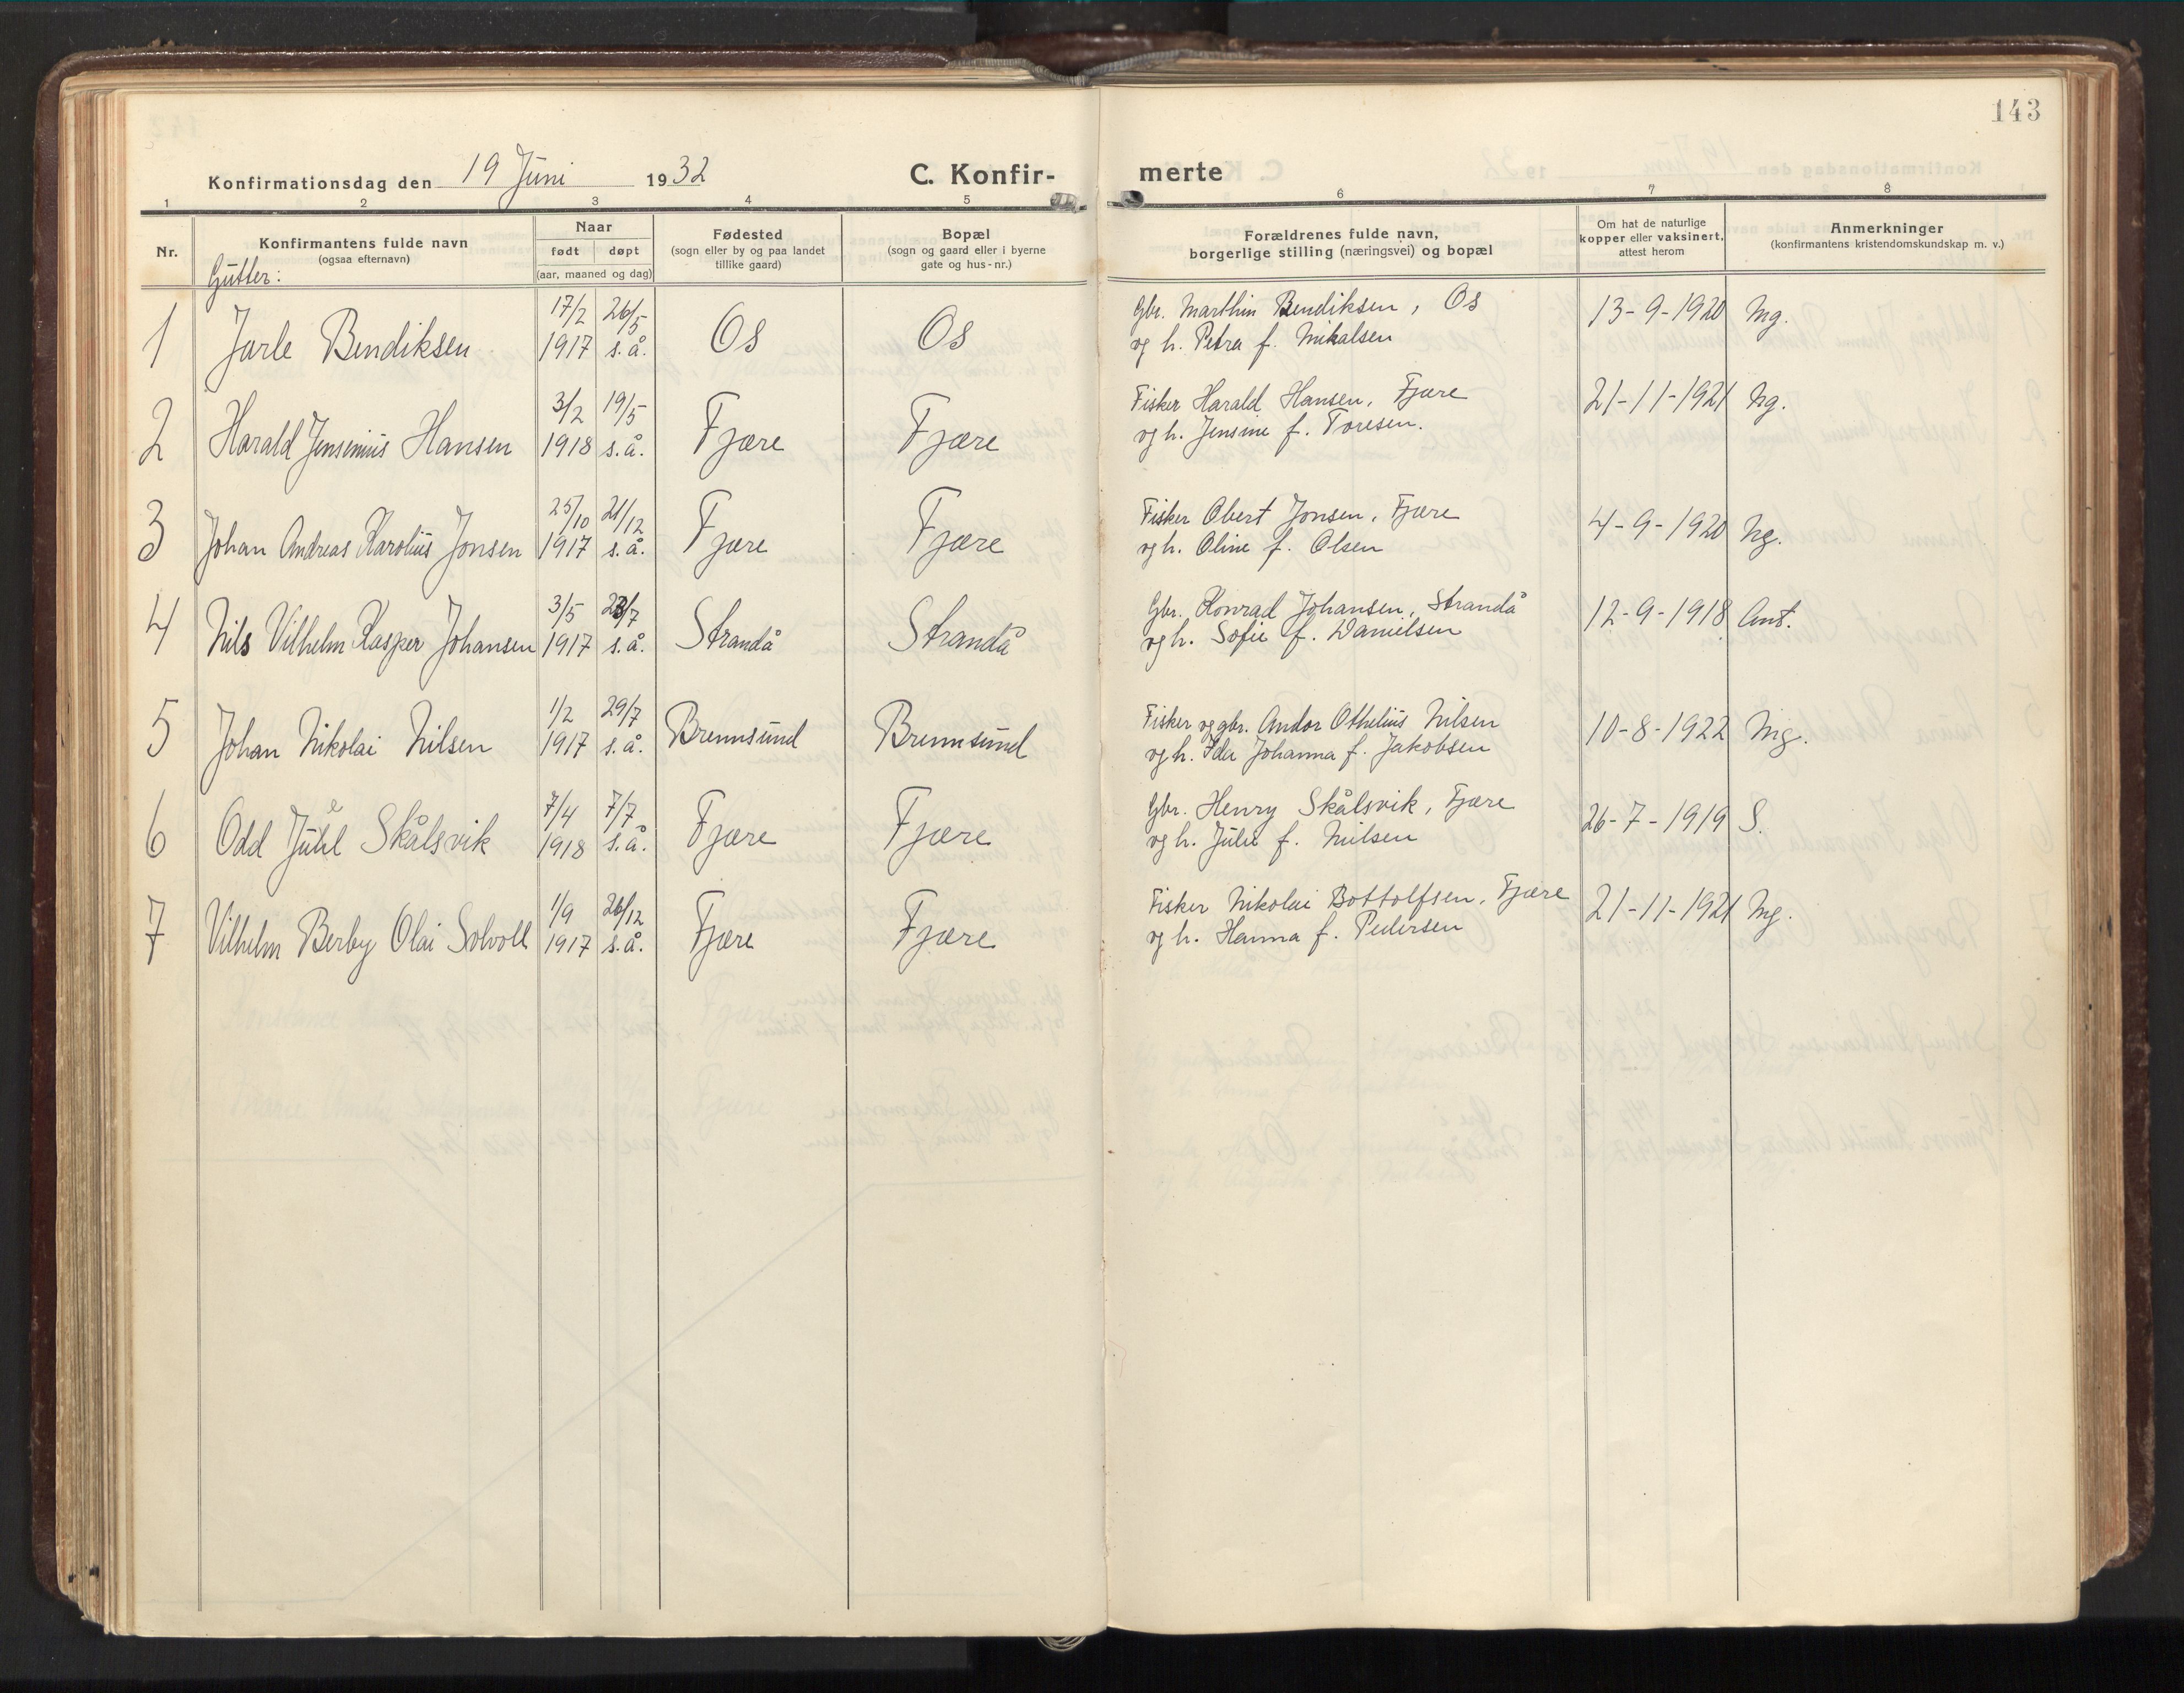 143
Konfirmationsdag den 19 Juni 1932 C. Konfir- merte
1 2 3 4 5 6 7 8
Nr. Konfirmantens fulde navn (ogsaa efternavn) Naar født døpt (aar, maaned og dag) Fødested (sogn eller by og paa landet tillike gaard) Bopæl (sogn og gaard eller i byerne gate og hus-nr.) Forældrenes fulde navn, borgerlige stilling (næringsvei) og bopæl Om hat de naturlige kopper eller vaksinert, attest herom Anmerkninger (konfirmantens kristendomskundskap m. v.)
Gutter:
1 Jarle Bendiksen 17/2 1917 26/5 s.å. Os Os Gbr. Marthin Bendiksen, Os
og h. Petra f. Mikalsen 13-9-1920 Mg.
2 Harald Jensenius Hansen 3/2 1918 19/5 s.å. Fjære Fjære Fisker Harald Hansen, Fjære
og h. Jensine f. Toresen. 21-11-1921 Ng.
3 Johan Andreas Karolius Jonsen 25/10 1917 21/12 s.å. Fjære Fjære Fisker Obert Jonsen, Fjære
og h. Oline f. Olsen 4-9-1920 Ng.
4 Nils Vilhelm Kasper Johansen 3/5 1917 /7 s.å. Strandå Strandå Gbr. Konrad Johansen, Strandå
og h. Sofie f. Danielsen 12-9-1918
5 Johan Nikolai Nilsen 1/2 1917 29/7 s.å. Brennsund Brennsund Fisker og gbr. Andor Othelius Nilsen
og h. Ida Johanna f. Jakobsen 10-8-1922 Mg.
6 Odd Skålsvik 7/4 1918 7/7 s.å. Fjære Fjære Gbr. Henry Skålsvik, Fjære
og h. Julie f. Nilsen 26-7-1919 S.
7 Vilhelm Berby Olai Solvoll 1/9 1917 26/12 s.å. Fjære Fjære Fisker Nikolai Bottolfsen, Fjære
og h. Hanna f. Pedersen 21-11-1921 Mg.